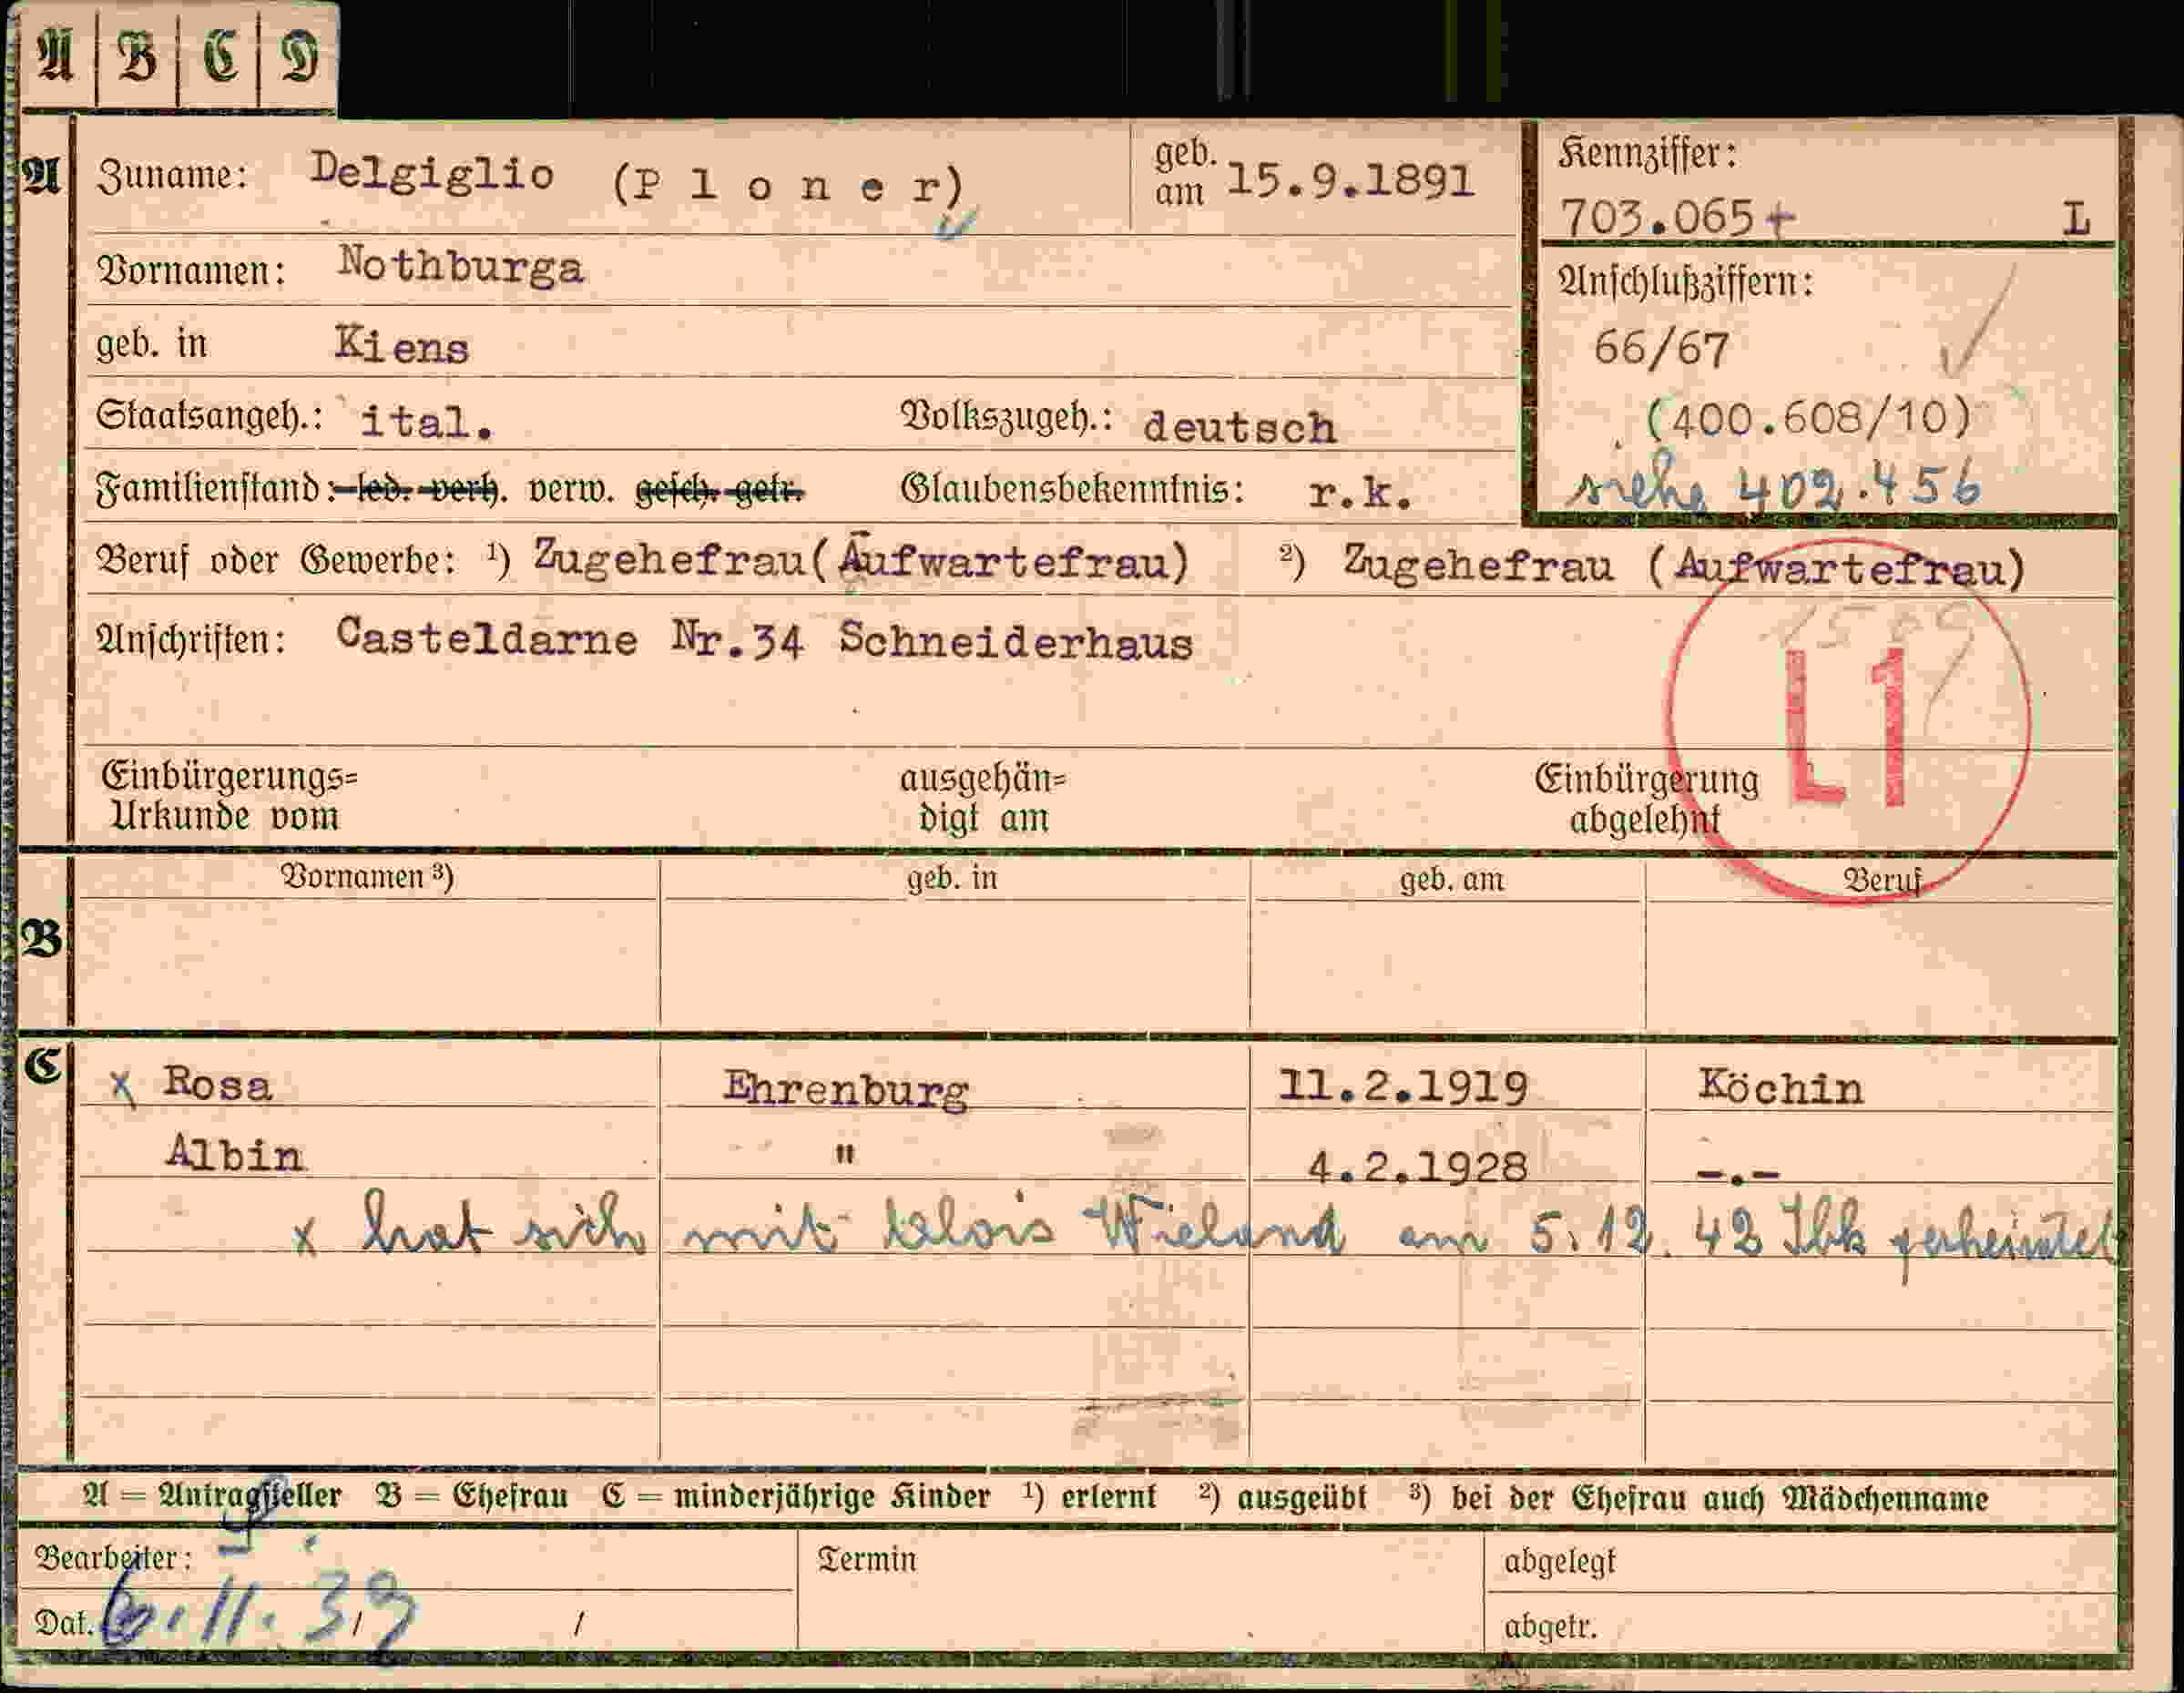 A B C D
A Zuname: Delgiglio (P l o n e r) geb. am 15.9.1891
Kennziffer:
703.065+ L
Vornamen: Nothburga
Anschlußziffern:
geb. in Kiens
66/67
Staatsangeh.: ital. Volkszugeh.: deutsch
(400.608/10)
Familienstand: led. verh. verw. gesch. getr. Glaubensbekenntnis: r.k.
siehe 402.456
Beruf oder Gewerbe: ¹) Zugehefrau(Aufwartefrau) ²) Zugehefrau (Aufwartefrau)
Anschriften: Casteldarne Nr.34 Schneiderhaus
L1
Einbürgerungs= ausgehän= Einbürgerung
Urkunde vom digt am abgelehnt
Vornamen ³) geb. in geb. am Beruf
B
C x Rosa Ehrenburg 11.2.1919 Köchin
Albin " 4.2.1928 -.-
x hat sich mit Alois Wieland am 5.12.42 Ibk verheiratet
A = Antragsteller B = Ehefrau C = minderjährige Kinder ¹) erlernt ²) ausgeübt ³) bei der Ehefrau auch Mädchenname
Bearbeiter: Termin abgelegt
Dat. 6.11.39 / / abgetr.